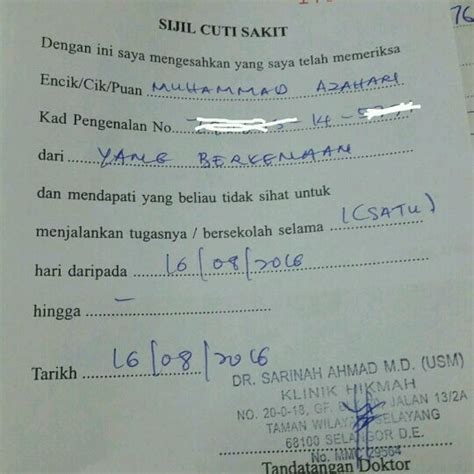 76
SIJIL CUTI SAKIT
Dengan ini saya mengesahkan yang saya telah memeriksa
Encik/Cik/Puan MUHAMMAD AZAHARI
Kad Pengenalan No. 14 -
dari YANG BERKENAAN
dan mendapati yang beliau tidak sihat untuk
menjalankan tugasnya / bersekolah selama 1(SATU)
hari daripada 16/08/2016
hingga –
Tarikh 16/08/2016
DR. SARINAH AHMAD M.D. (USM)
KLINIK HIKMAH
NO. 20-0-18, GF, JALAN 13/2A
TAMAN SELAYANG
68100 SELANGOR D.E.
No. MMC 29564
Tandatangan Doktor